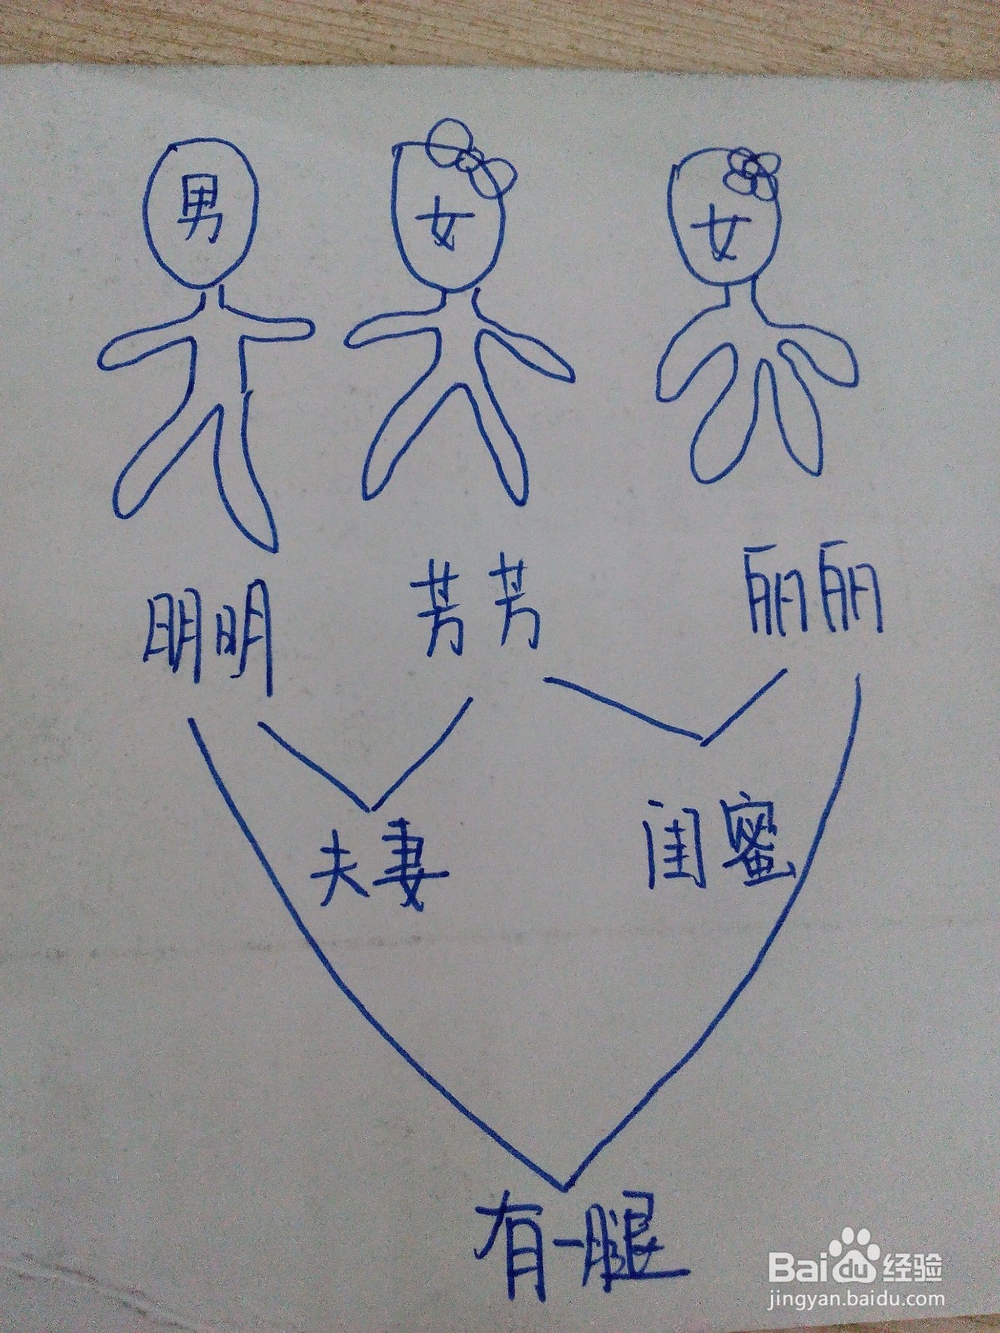 男 女 女
明明 芳芳 丽丽
夫妻 闺蜜
有一腿
Baidu 经验
jingyan.baidu.com